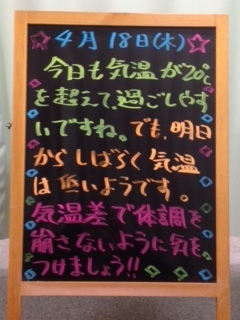 4月18日(木)
今日も気温が20℃
を超えて、過ごしやす
いですね。でも、明日
からしばらく気温
は低いようです。
気温差で体調を
崩さないように気を
つけましょう!!